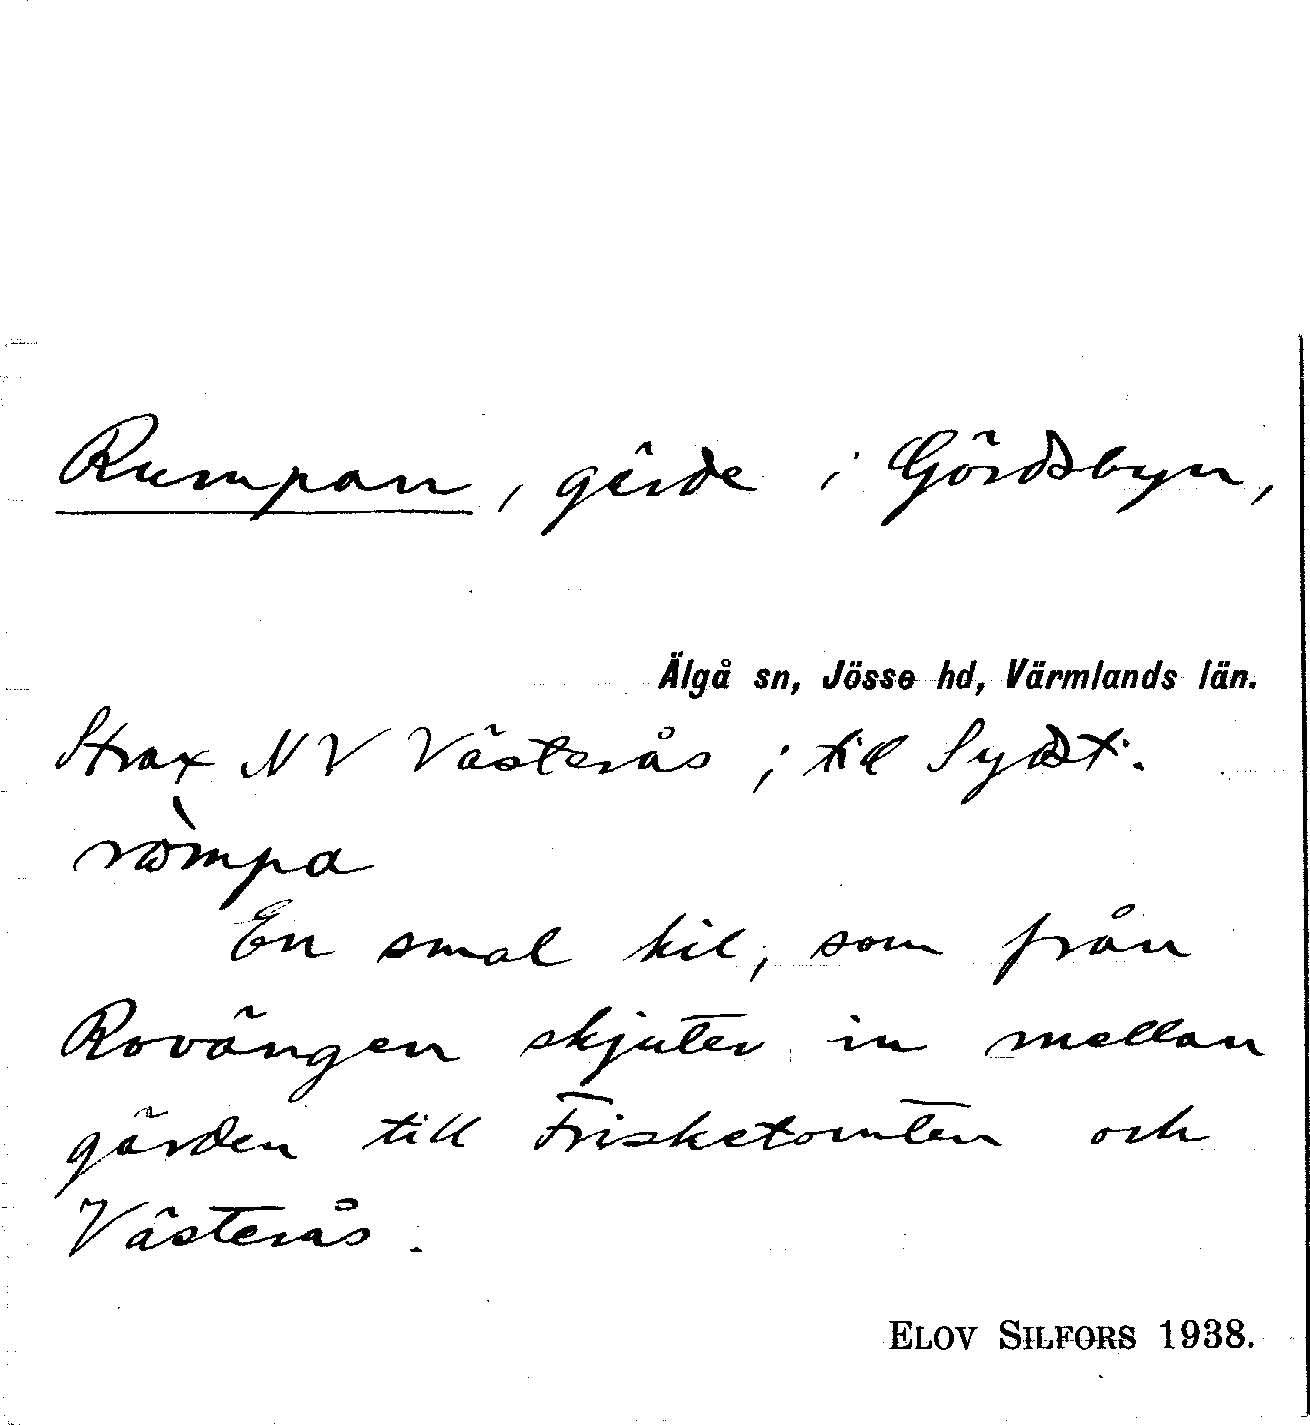 Rumpan, gärde i Gördsbyn,
Älgå sn, Jösse hd, Värmlands län.
Strax NV Västerås; till Sydt.
ròmpa
En smal kil, som från
Rovängen skjuter in mellan
gärden till Frisketomten och
Västerås.
ELOV SILFORS 1938.